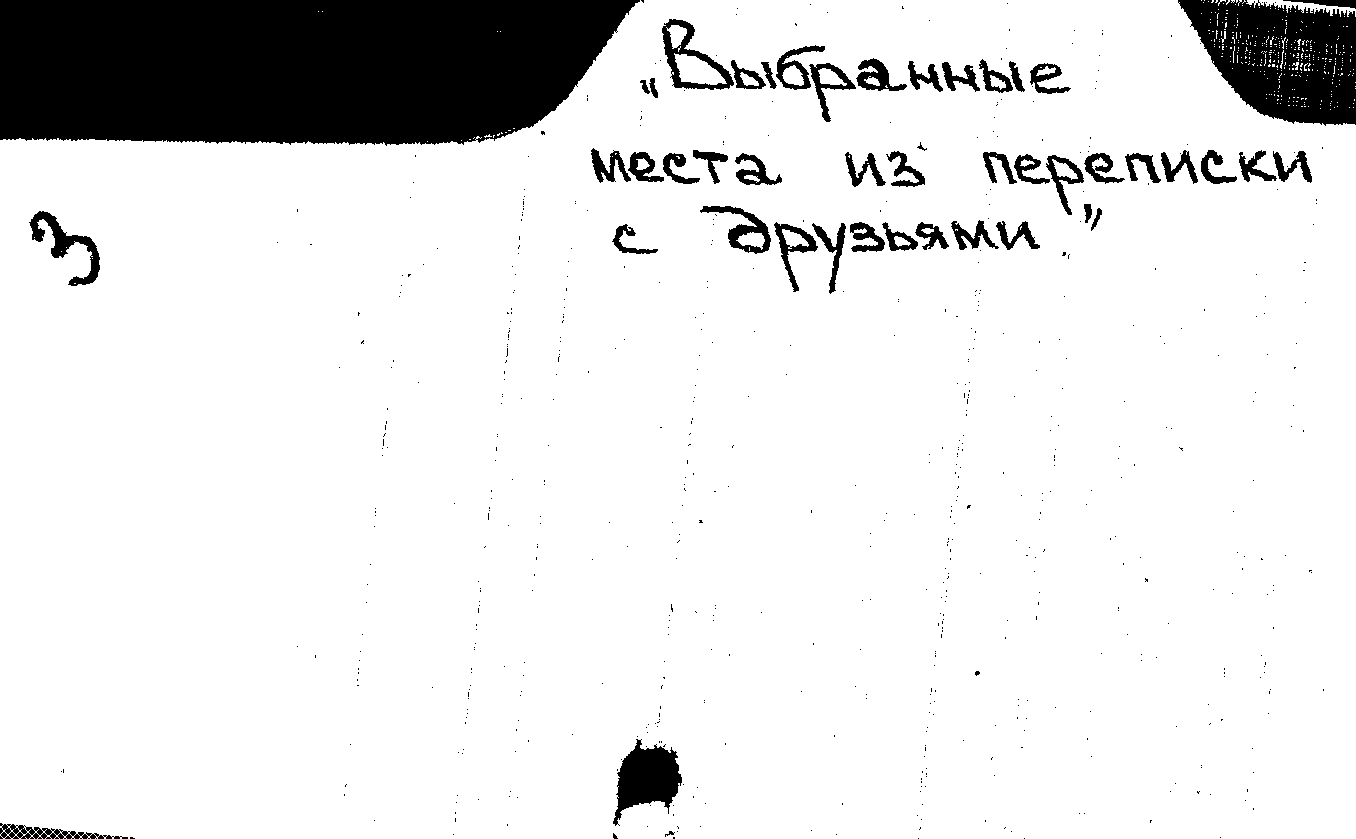 „Выбранные
места из переписки
с друзьями”
3